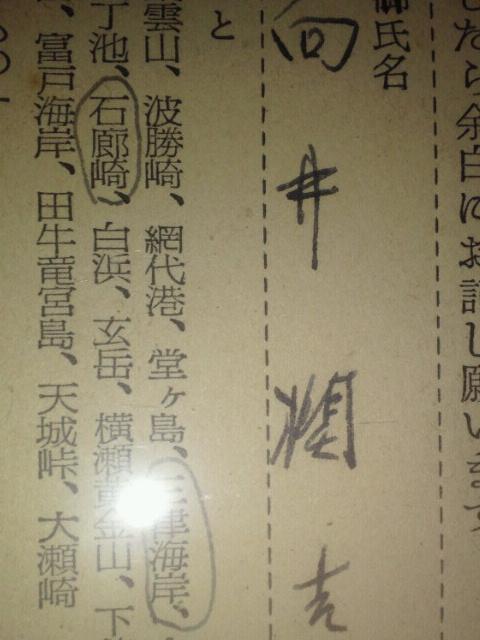 したら余白にお記し願います
御氏名
向井潤吉
と
雲山、波勝崎、網代港、堂ヶ島、三津海岸、
丁池、石廊崎、白浜、玄岳、横瀬黄金山、下
、富戸海岸、田牛竜宮島、天城峠、大瀬崎